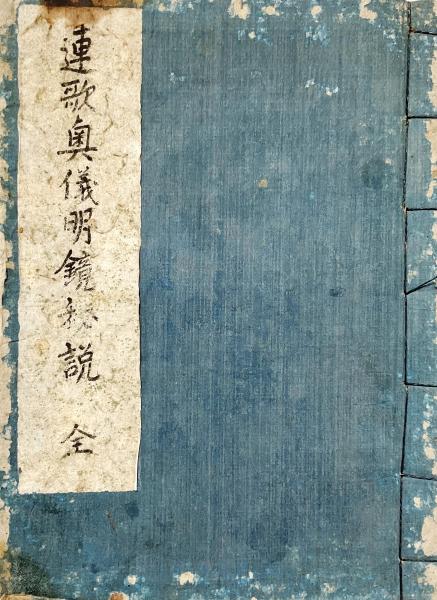 連歌奥儀明鏡秘説 全